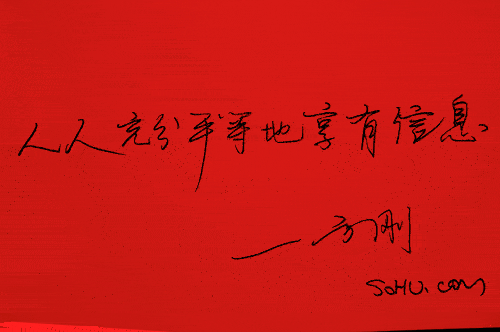 人人充分平等地享有信息.
—方刚
SOHU.com